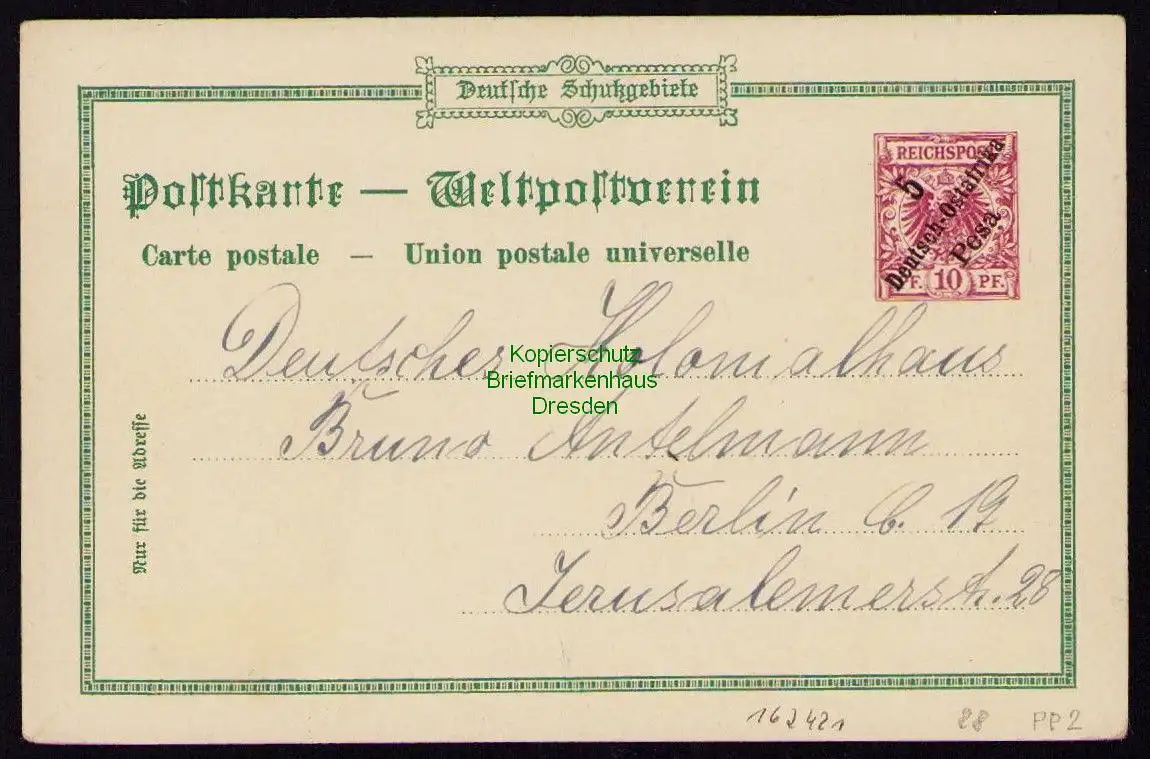 Deutsche Schutzgebiete
Postkarte — Weltpostverein
Carte postale — Union postale universelle
REICHSPOST
5
Deutsch-Ostafrika
Pesa
PF. 10 PF.
Deutsches Kolonialhaus
Bruno Antelmann
Berlin C. 19
Jerusalemerstr. 28
Nur für die Adresse
Kopierschutz
Briefmarkenhaus
Dresden
162421
28 PP2